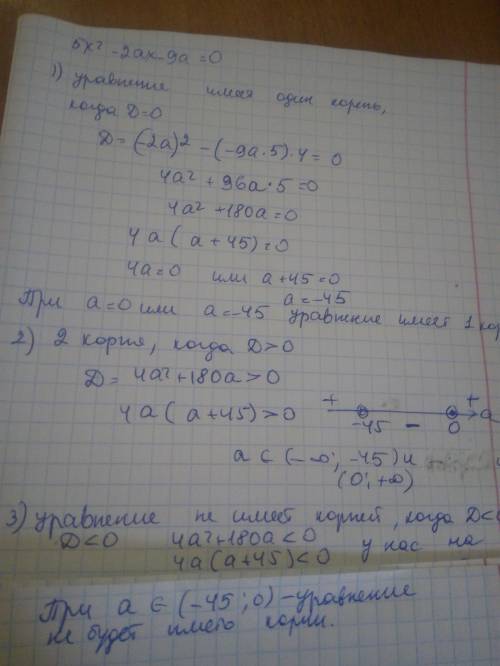 5x² - 2ax - 9a = 0
1) уравнение имея один корень,
когда D=0
D = (-2a)² - (-9a·5)·4 = 0
4a² + 36a·5 = 0
4a² + 180a = 0
4a (a + 45) = 0
4a = 0 или a + 45 = 0
a = -45
При a = 0 или a = -45 уравнение имеет 1 кор
2) 2 корня, когда D > 0
D = 4a² + 180a > 0
4a (a + 45) > 0
+ - +
-45 0 a
a ∈ (-∞; -45) и
(0; +∞)
3) уравнение не имеет корней, когда D <
D < 0 4a² + 180a < 0
4a (a + 45) < 0 у нас на
При a ∈ (-45; 0) - уравнение
не будет иметь корни.